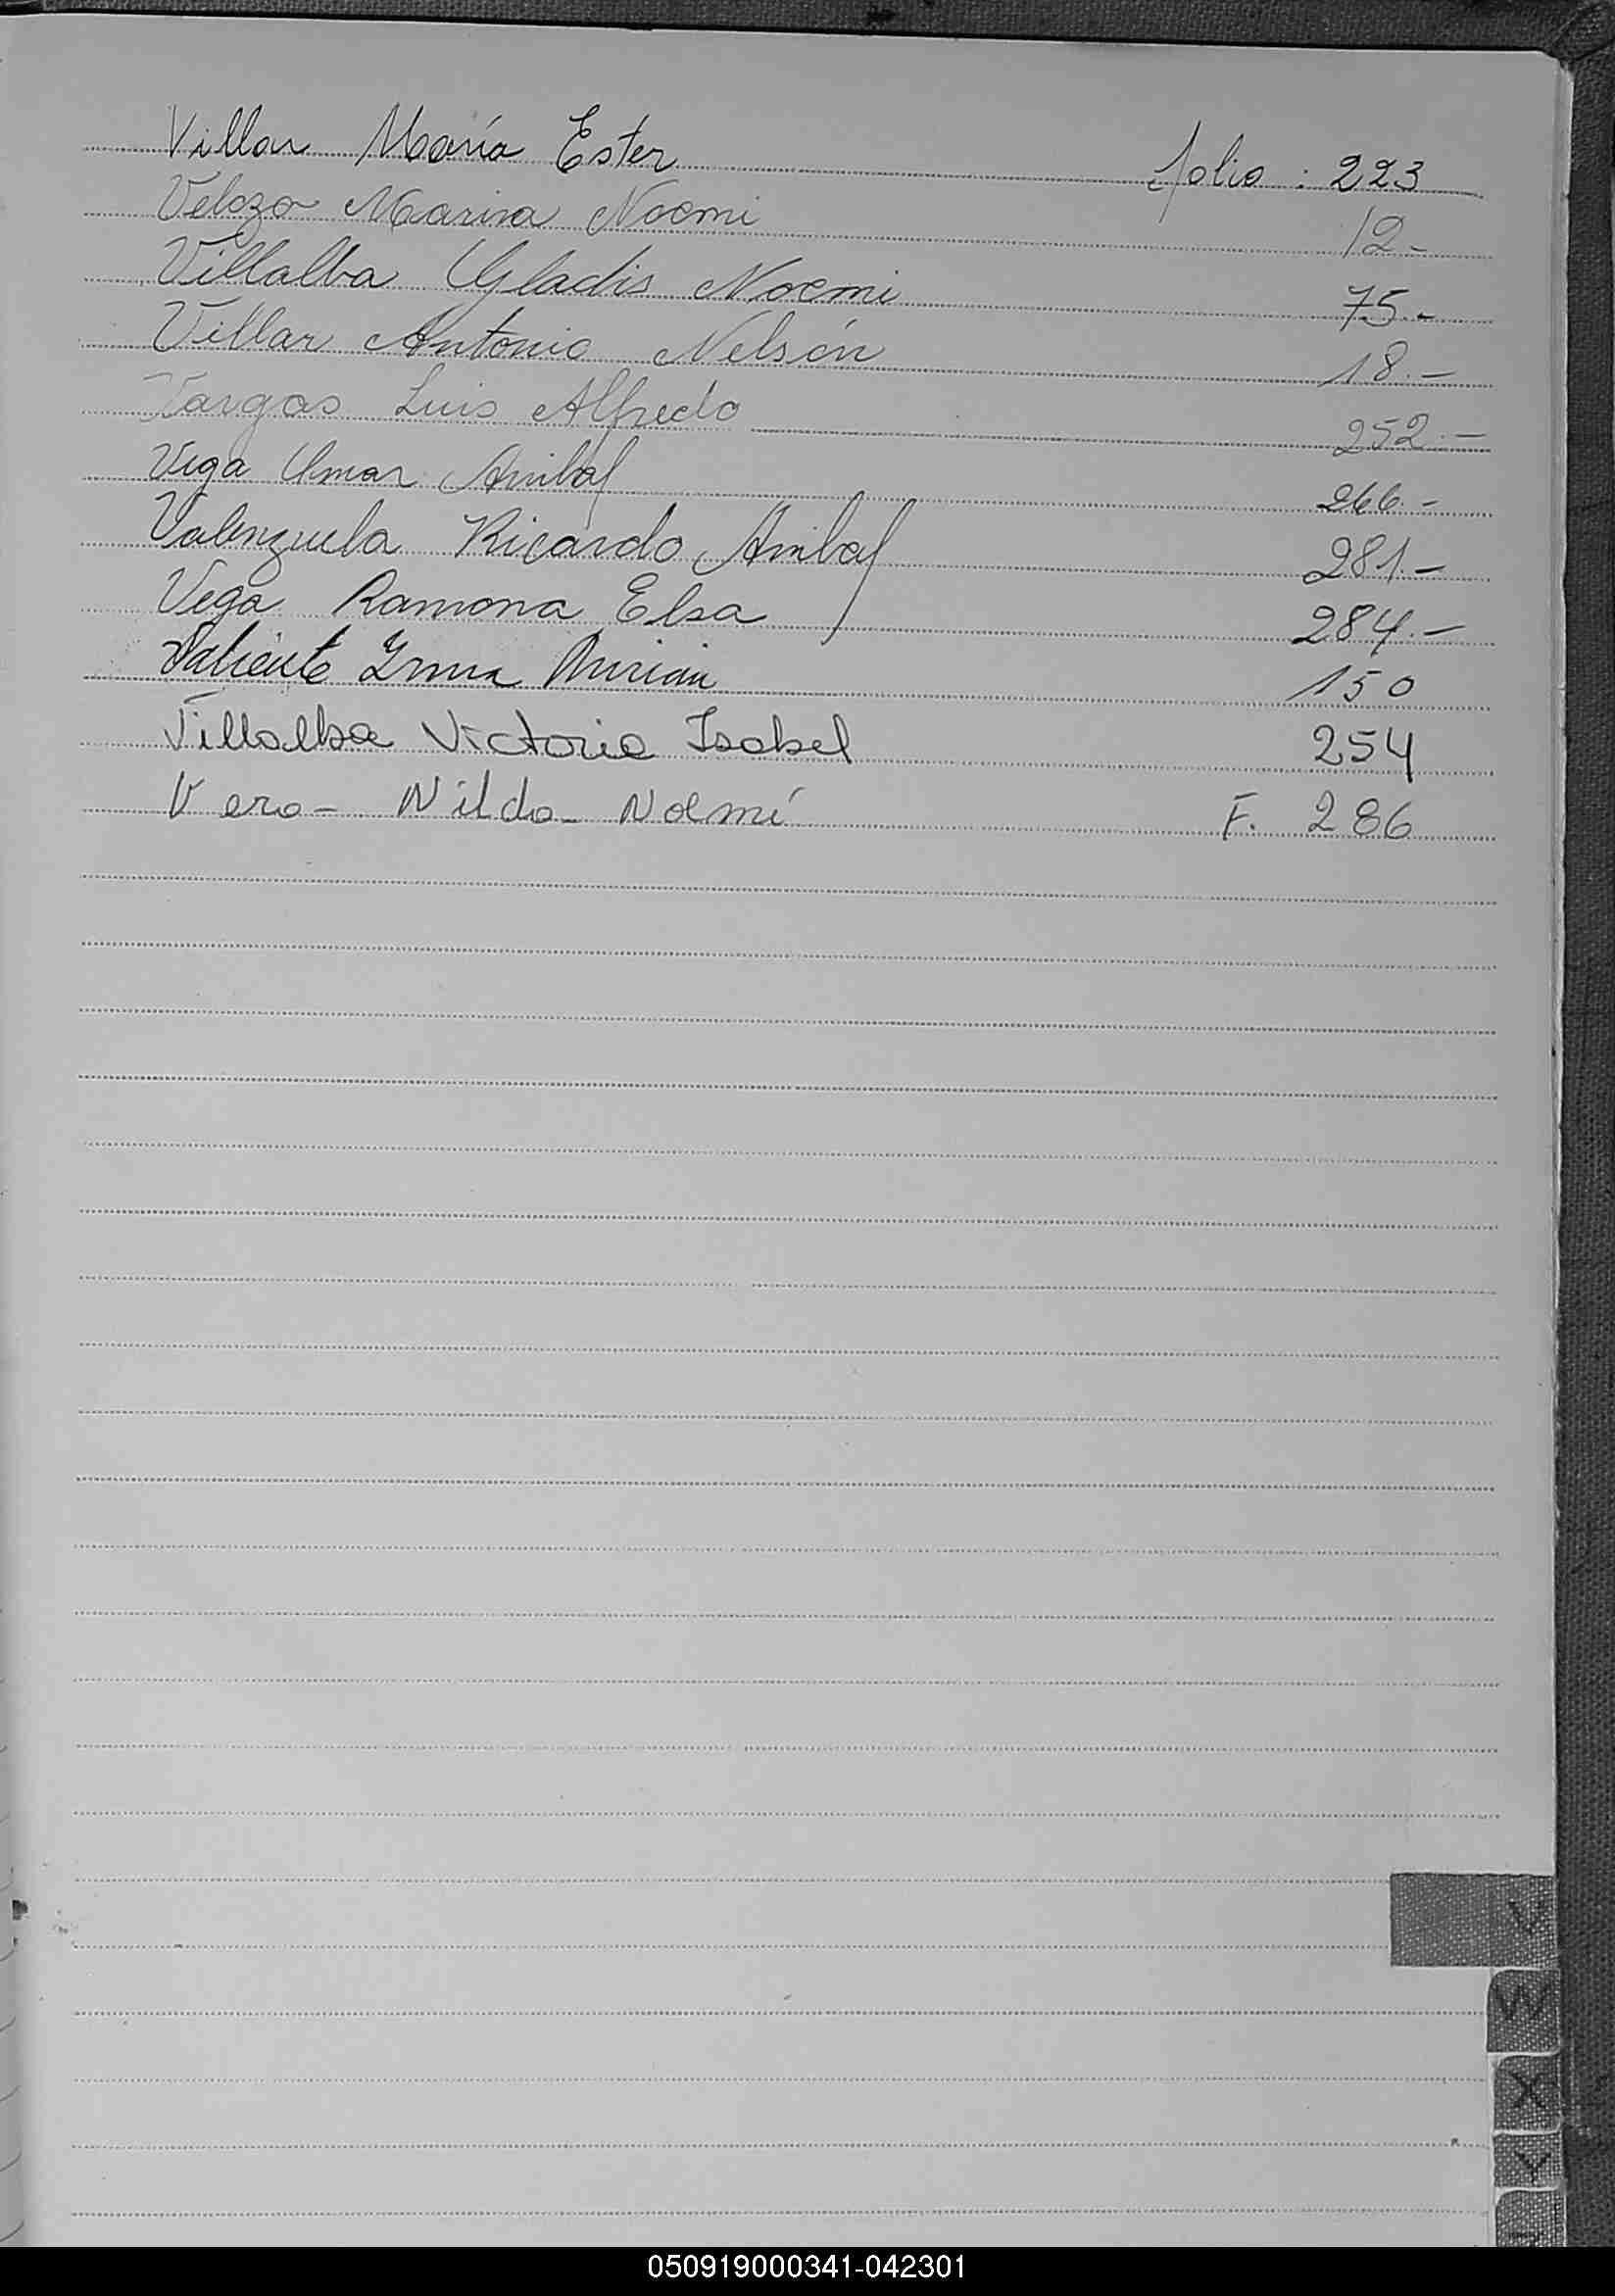 Villar María Ester folio : 223
Velozo Marina Noemi 12.-
Villalba Gladis Noemi 75.-
Villar Antonio Nelsón 18.-
Vargas Luis Alfredo 252.-
Vega Omar Anibal 266.-
Valenzuela Ricardo Anibal 281.-
Vega Ramona Elsa 284.-
Valiente Irma Mirian 150
Villalba Victoria Isabel 254
Vera- Nilda- Noemí F. 286
V
W
X
Y
050919000341-042301